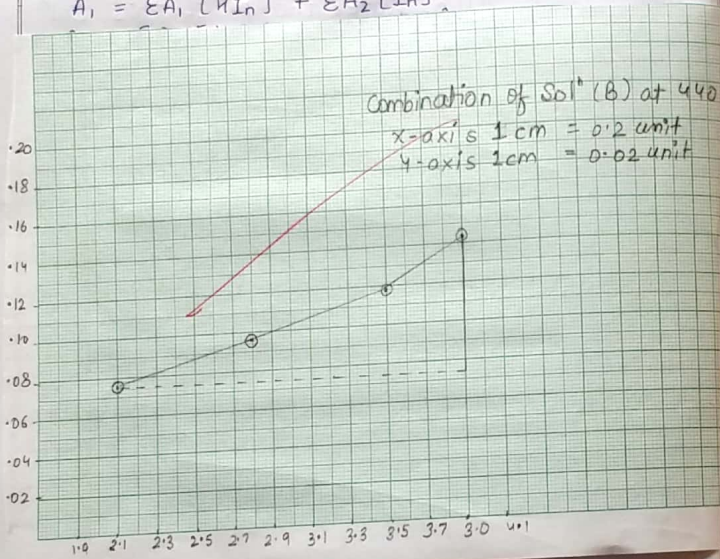 A₁ = ƐA₁ [HIn] + ƐA₂ [In]
Combination of Solⁿ (B) at 440
x-axis 1 cm = 0.2 unit
y-axis 1cm = 0.02 unit
.20
.18
.16
.14
.12
.10
.08
.06
.04
.02
1.9 2.1 2.3 2.5 2.7 2.9 3.1 3.3 3.5 3.7 3.0 4.1